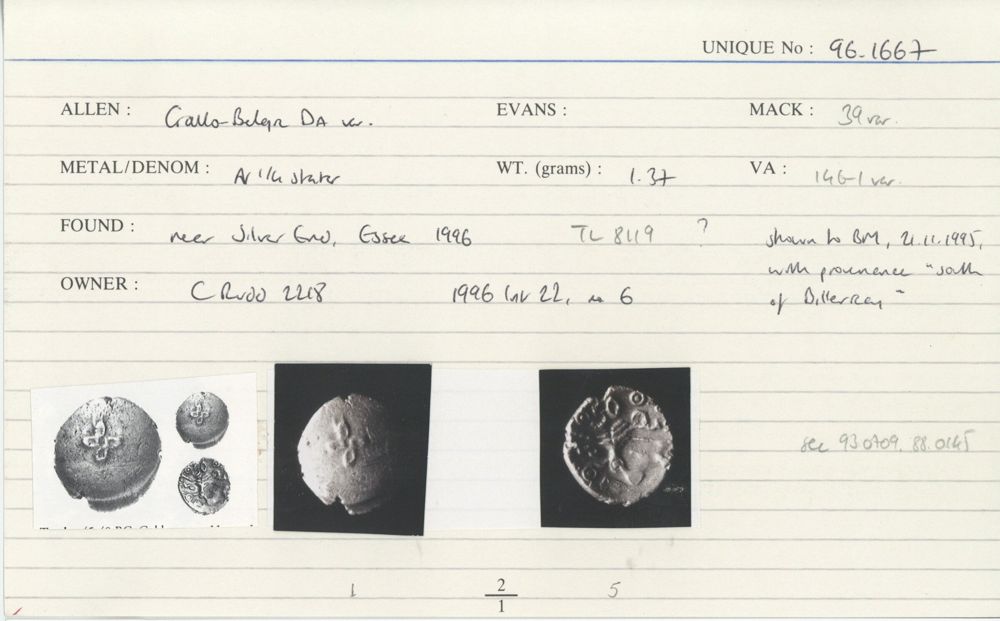 UNIQUE No : 96-1667
ALLEN : Gallo-Belgic DA var. EVANS : MACK : 39 var.
METAL/DENOM : AV 1/4 stater WT. (grams) : 1.37 VA : 146-1 var.
FOUND : near Silver End, Essex 1996 TL 8119 ? shown to BM, 21.11.1995,
with provenance "south
OWNER : C Rudd 2218 1996 list 22, no 6 of Billericay"
see 93.0709, 88.0145
1 2/1 5